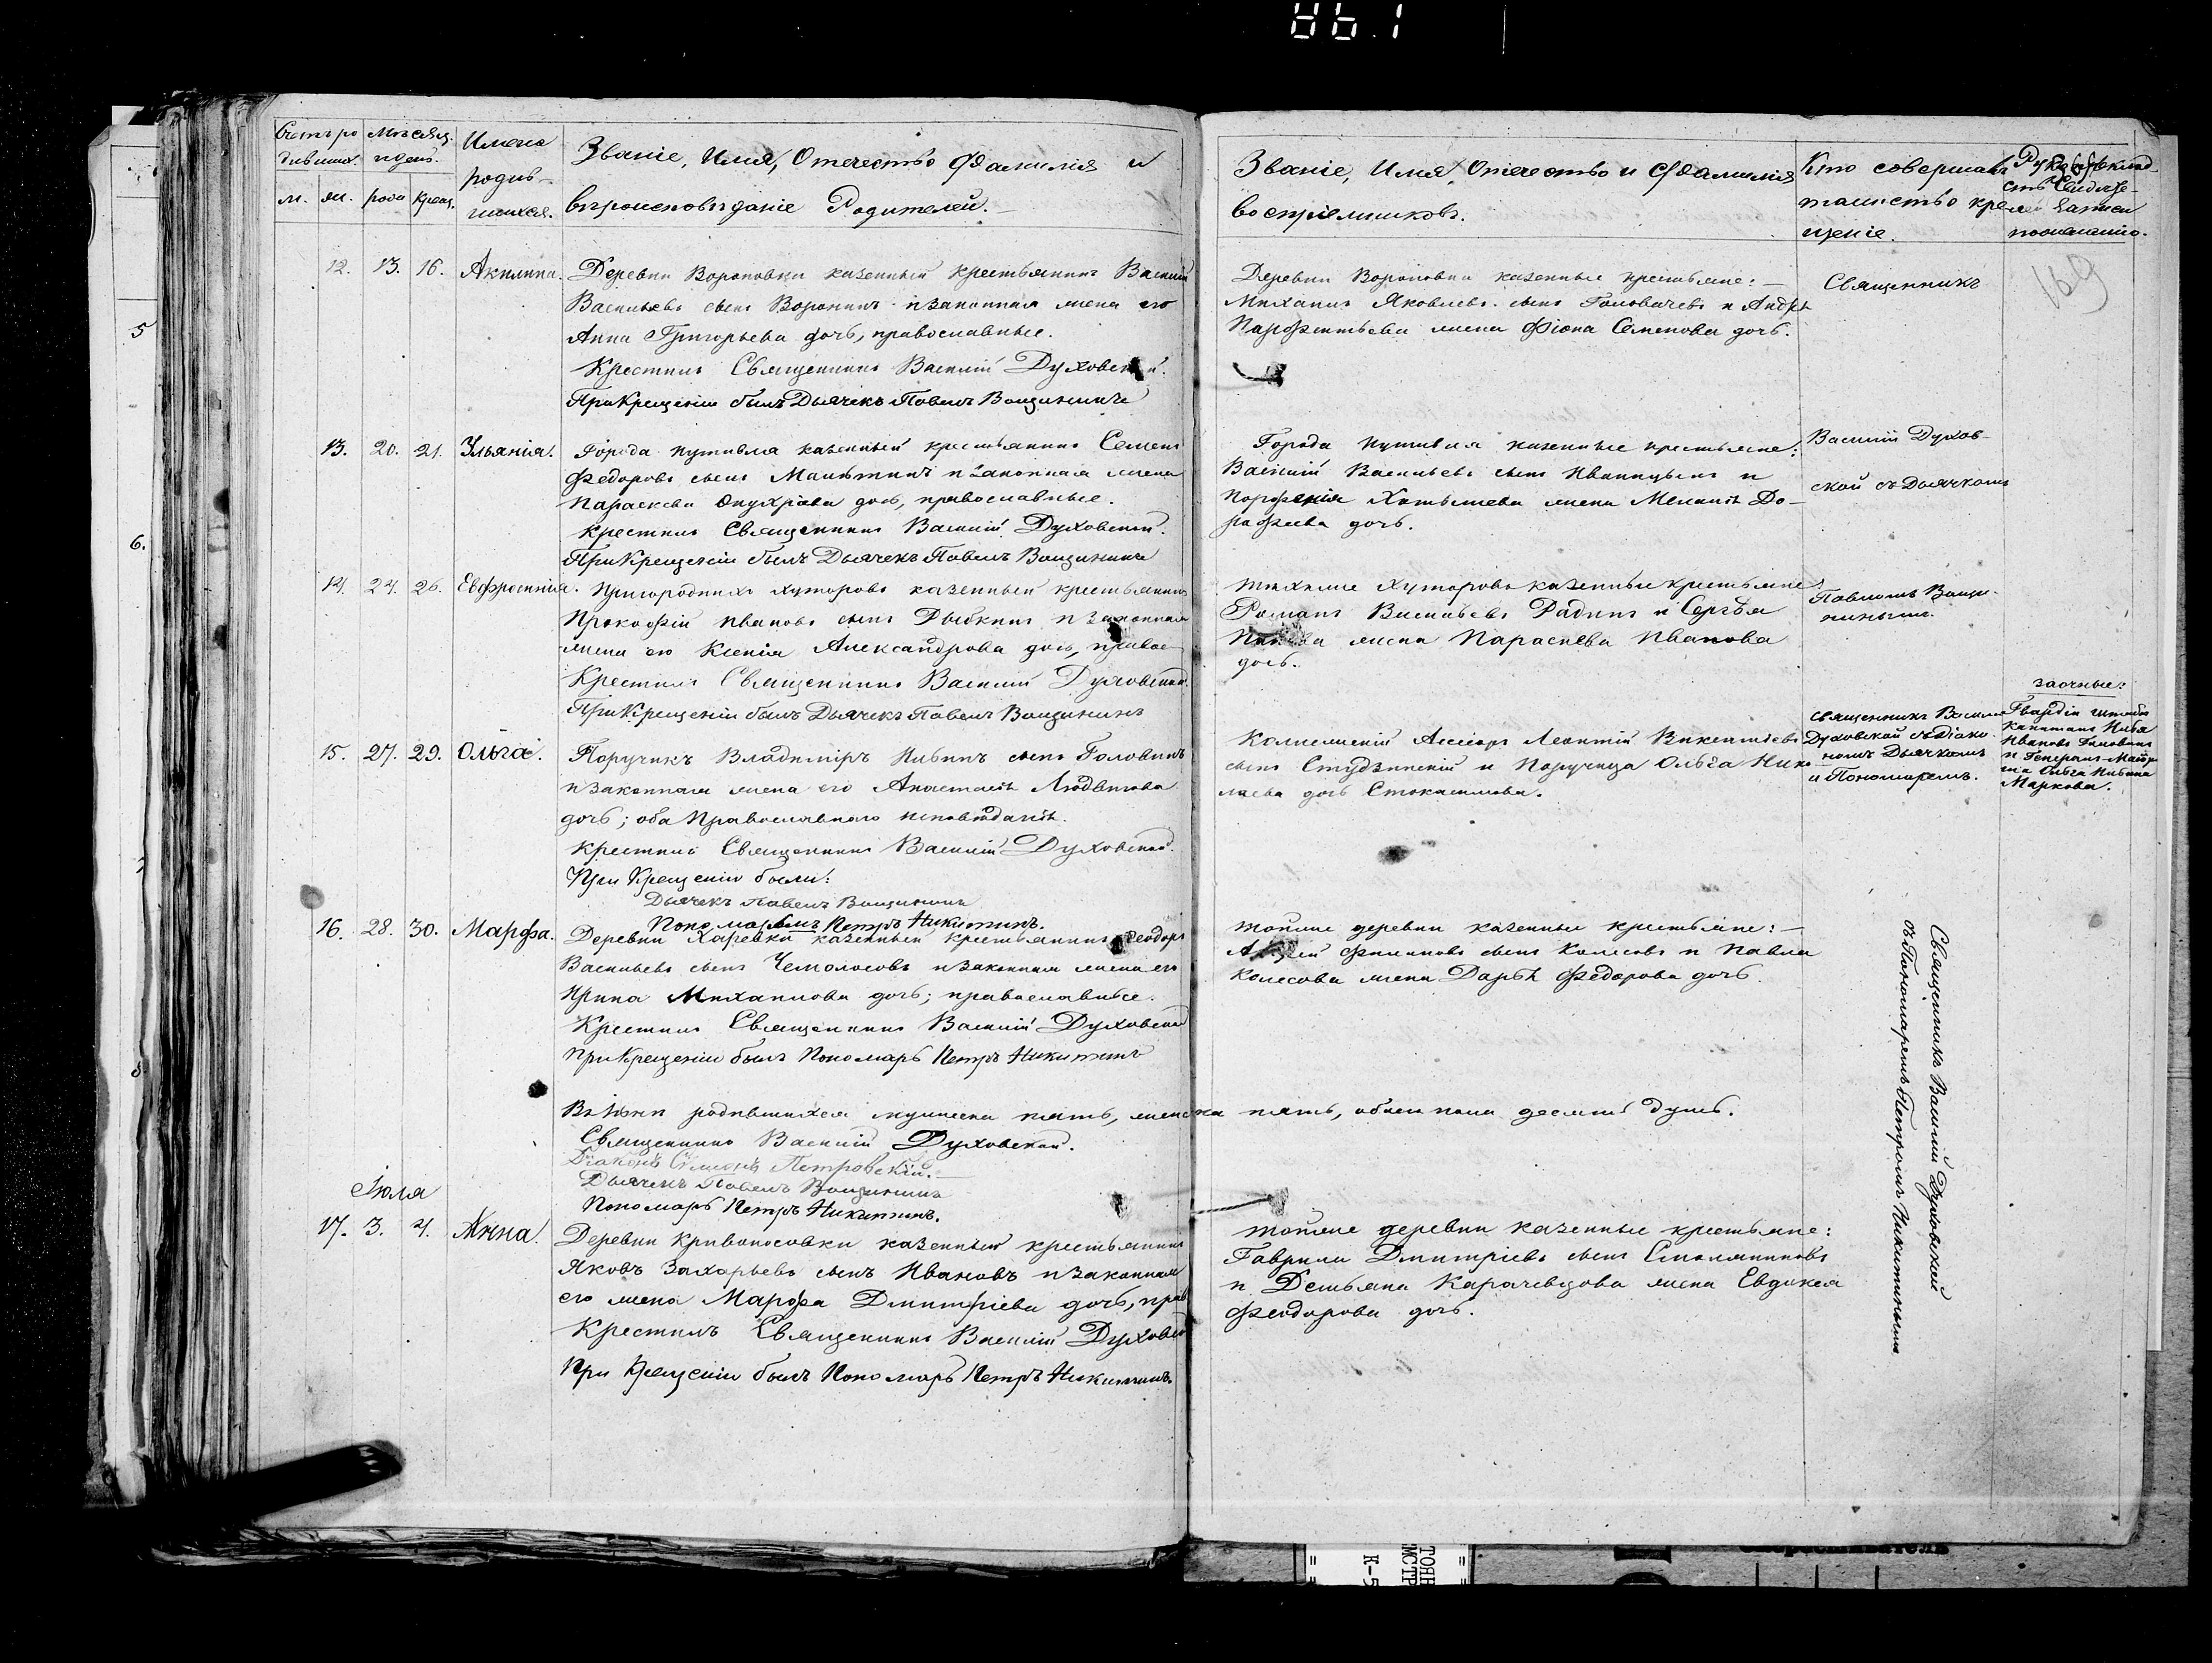 Счетъ ро
дившихъ.
Мѣсяцъ
и день.
м. ж. рода крещ.
Имена
родив-
шихся.
Званіе, Имя, Отечество Фамилія и
вѣроисповѣданіе Родителей.
Званіе, Имя, Отечество и Фамилія
воспріемниковъ.
Кто совершалъ
таинство кре
щеніе.
Рукоприклад
ство Свидѣте-
лей записи
по желанію.
169
12. 13. 16. Акилина.
Деревни Вороновки казенный крестьянинъ Василій
Васильевъ сынъ Воронинъ и законная жена его
Анна Григорьева дочь, православные.
Крестилъ Священникъ Василій Духовской.
При Крещеніи былъ Дьячекъ Павелъ Вощининъ
Деревни Вороновки казенные крестьяне: —
Михаилъ Яковлевъ сынъ Головачевъ и Андрѣя
Парфентьева жена Фіона Семенова дочь.
Священникъ
13. 20. 21. Ульянія.
Города Путивля казенный крестьянинъ Семенъ
Федоровъ сынъ и законная жена
Параскева дочь, православные.
Крестилъ Священникъ Василій Духовской.
При Крещеніи былъ Дьячекъ Павелъ Вощининъ
Города Путивля казенные крестьяне:
Василій Васильевъ сынъ и
жена Меланія До-
рофеева дочь.
Василій Духов-
ской съ Дьячкомъ
14. 24. 26. Евфросинія.
Пригородныхъ хуторовъ казенный крестьянинъ
Прокофій Ивановъ сынъ Рыбкинъ и законная
жена его Ксенія Александрова дочь, правос
Крестилъ Священникъ Василій Духовской.
При Крещеніи былъ Дьячекъ Павелъ Вощининъ
Тѣхже хуторовъ казенные крестьяне:
Романъ Васильевъ Радинъ и Сергѣя
жена Параскева Иванова
дочь.
Павломъ Вощи-
нинымъ.
15. 27. 29. Ольга.
Поручикъ Владиміръ Ивинъ сынъ Головинъ
и законная жена его Анастасія Людвигова
дочь; оба Православнаго исповѣданія.
Крестилъ Священникъ Василій Духовской.
При Крещеніи были:
Дьячекъ Павелъ Вощининъ
Пономарь Петръ Никитинъ.
Коллежскій Ассесоръ Леонтій Викентіевъ
сынъ Студзинскій и Поручица Ольга Нико
лаева дочь Стокасимова.
Священникъ Василій
Духовской съ Діако-
номъ Дьячкомъ
и Пономаремъ.
Заочные:
Гвардіи штабсъ
Капитанъ
Ивановъ Головинъ
и Генералъ-Маіор
ша Ольга Ивина
Маркова.
16. 28. 30. Марфа.
Деревни Харевки казенный крестьянинъ Феодоръ
Васильевъ сынъ Чемолосовъ и законная жена его
Ирина Михаилова дочь; православные.
Крестилъ Священникъ Василій Духовской
При Крещеніи былъ Пономарь Петръ Никитинъ
Тойже деревни казенные крестьяне: —
Филиповъ сынъ Колесовъ и Павла
Колесова жена Дарья Федорова дочь.
Священникъ Василій Духовской
съ Пономаремъ Петромъ Никитинымъ
Въ Іюнѣ родившихся мужеска пять, женска пять, обоего пола десять душъ.
Священникъ Василій Духовской.
Діаконъ Симеонъ Петровскій.
Дьячекъ Павелъ Вощининъ
Пономарь Петръ Никитинъ.
Іюля
17. 3. 4. Анна.
Деревни Кривоносовки казенный крестьянинъ
Яковъ Захарьевъ сынъ Ивановъ и законная
его жена Марфа Дмитріева дочь, прав
Крестилъ Священникъ Василій Духовской
При Крещеніи былъ Пономарь Петръ Никитинъ.
Тойже деревни казенные крестьяне:
Гаврила Дмитріевъ сынъ Столяниновъ
и Демьяна Карачевцова жена Евдокея
Феодорова дочь.
5
6.